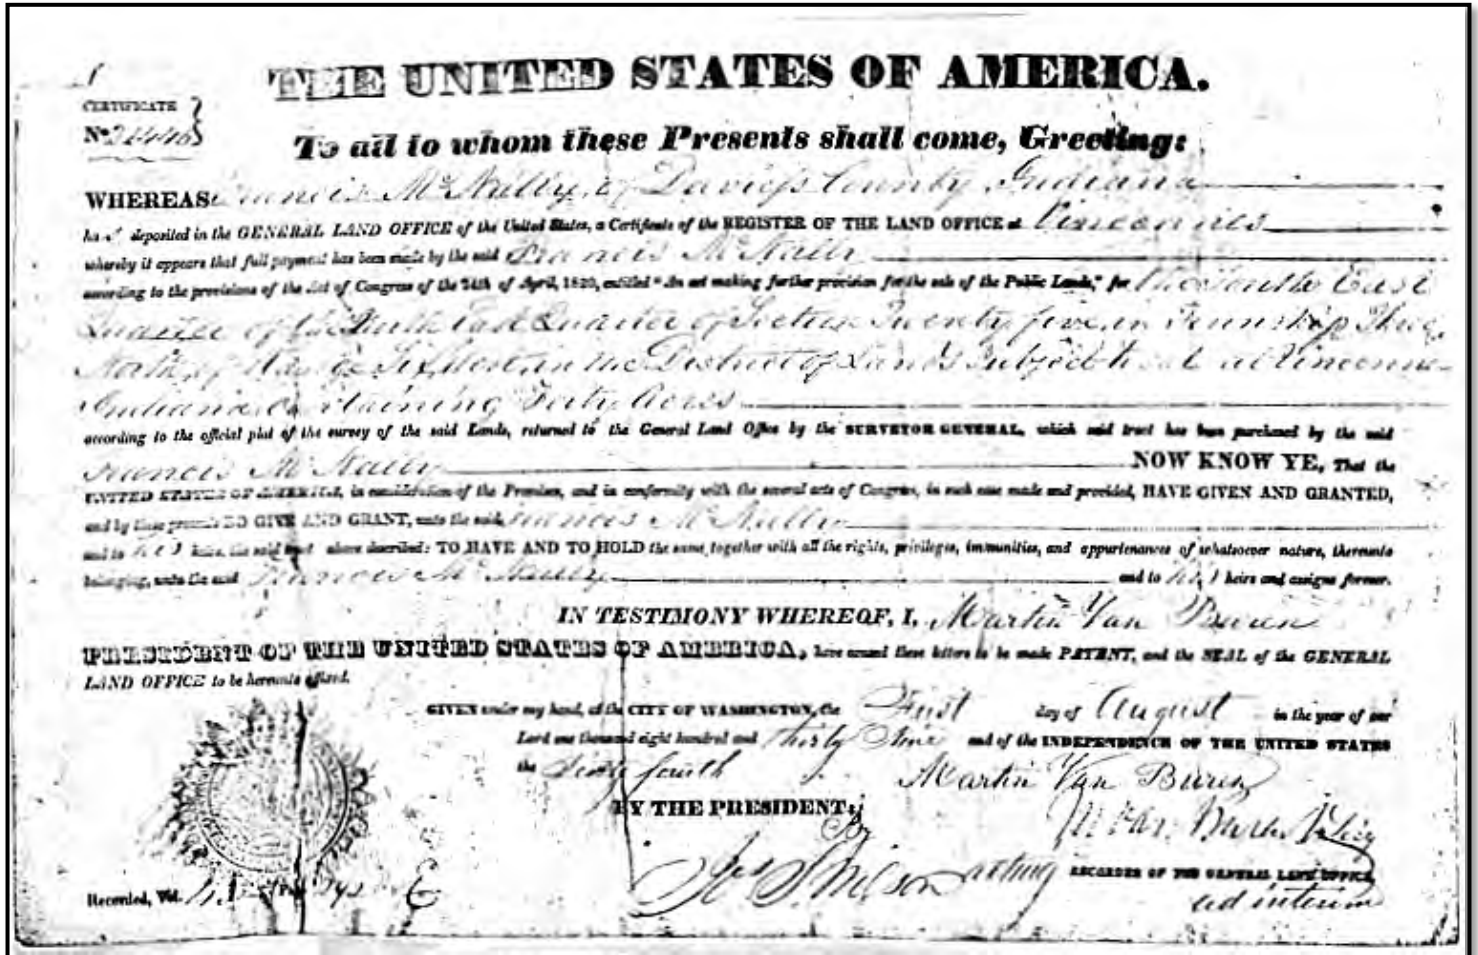 THE UNITED STATES OF AMERICA.
CERTIFICATE
No.
To all to whom these Presents shall come, Greeting:
WHEREAS Francis McNally, of Daviess County Indiana
deposited in the GENERAL LAND OFFICE of the United States, a Certificate of the REGISTER OF THE LAND OFFICE at Vincennes
whereby it appears that full payment has been made by the said Francis McNally
according to the provisions of the Act of Congress of the 24th of April, 1820, entitled "An act making further provision for the sale of the Public Lands," for the South East
Quarter of the East Quarter of Section Twenty five, in Township Three
North, of Range Six West, in the District of Lands subject to sale at Vincennes
Indiana, containing Forty Acres
according to the official plat of the survey of the said Lands, returned to the General Land Office by the SURVEYOR GENERAL, which said tract has been purchased by the said
Francis McNally NOW KNOW YE, That the
UNITED STATES OF AMERICA, in consideration of the Premises, and in conformity with the several acts of Congress, in such case made and provided, HAVE GIVEN AND GRANTED,
and by these presents DO GIVE AND GRANT, unto the said Francis McNally
and to his heirs, the said tract above described: TO HAVE AND TO HOLD the same, together with all the rights, privileges, immunities, and appurtenances of whatsoever nature, thereunto
belonging, unto the said Francis McNally and to his heirs and assigns forever.
IN TESTIMONY WHEREOF, I, Martin Van Buren
PRESIDENT OF THE UNITED STATES OF AMERICA, have caused these letters to be made PATENT, and the SEAL of the GENERAL
LAND OFFICE to be hereunto affixed.
GIVEN under my hand, at the CITY OF WASHINGTON, the First day of August in the year of our
Lord one thousand eight hundred and thirty Nine and of the INDEPENDENCE OF THE UNITED STATES
the Sixty fourth
Martin Van Buren
BY THE PRESIDENT:
By M Van Buren
Jos S. Wilson acting RECORDER OF THE GENERAL LAND OFFICE,
ad interim
Recorded, Vol.